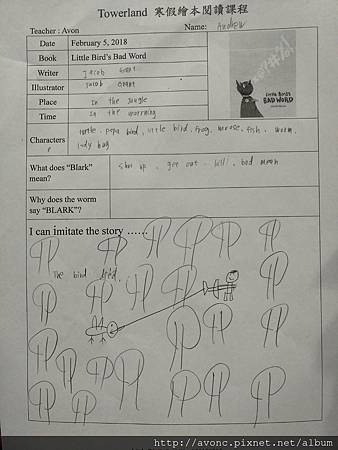 Towerland 寒假繪本閱讀課程
Teacher : Avon Name: Andrew
Date February 5, 2018
Book Little Bird's Bad Word
Writer Jacob Grant
Illustrator Jacob Grant
Place In the jungle
Time In the morning
Characters turtle, papa bird, little bird, frog, mouse, fish, worm,
lady bag
LITTLE BIRD'S
BAD WORD
What does "Blark" mean? shut up, get out, kill, bad mean
Why does the worm say "BLARK"?
I can imitate the story ……
The bird died.
http://avonc.pixnet.net/album